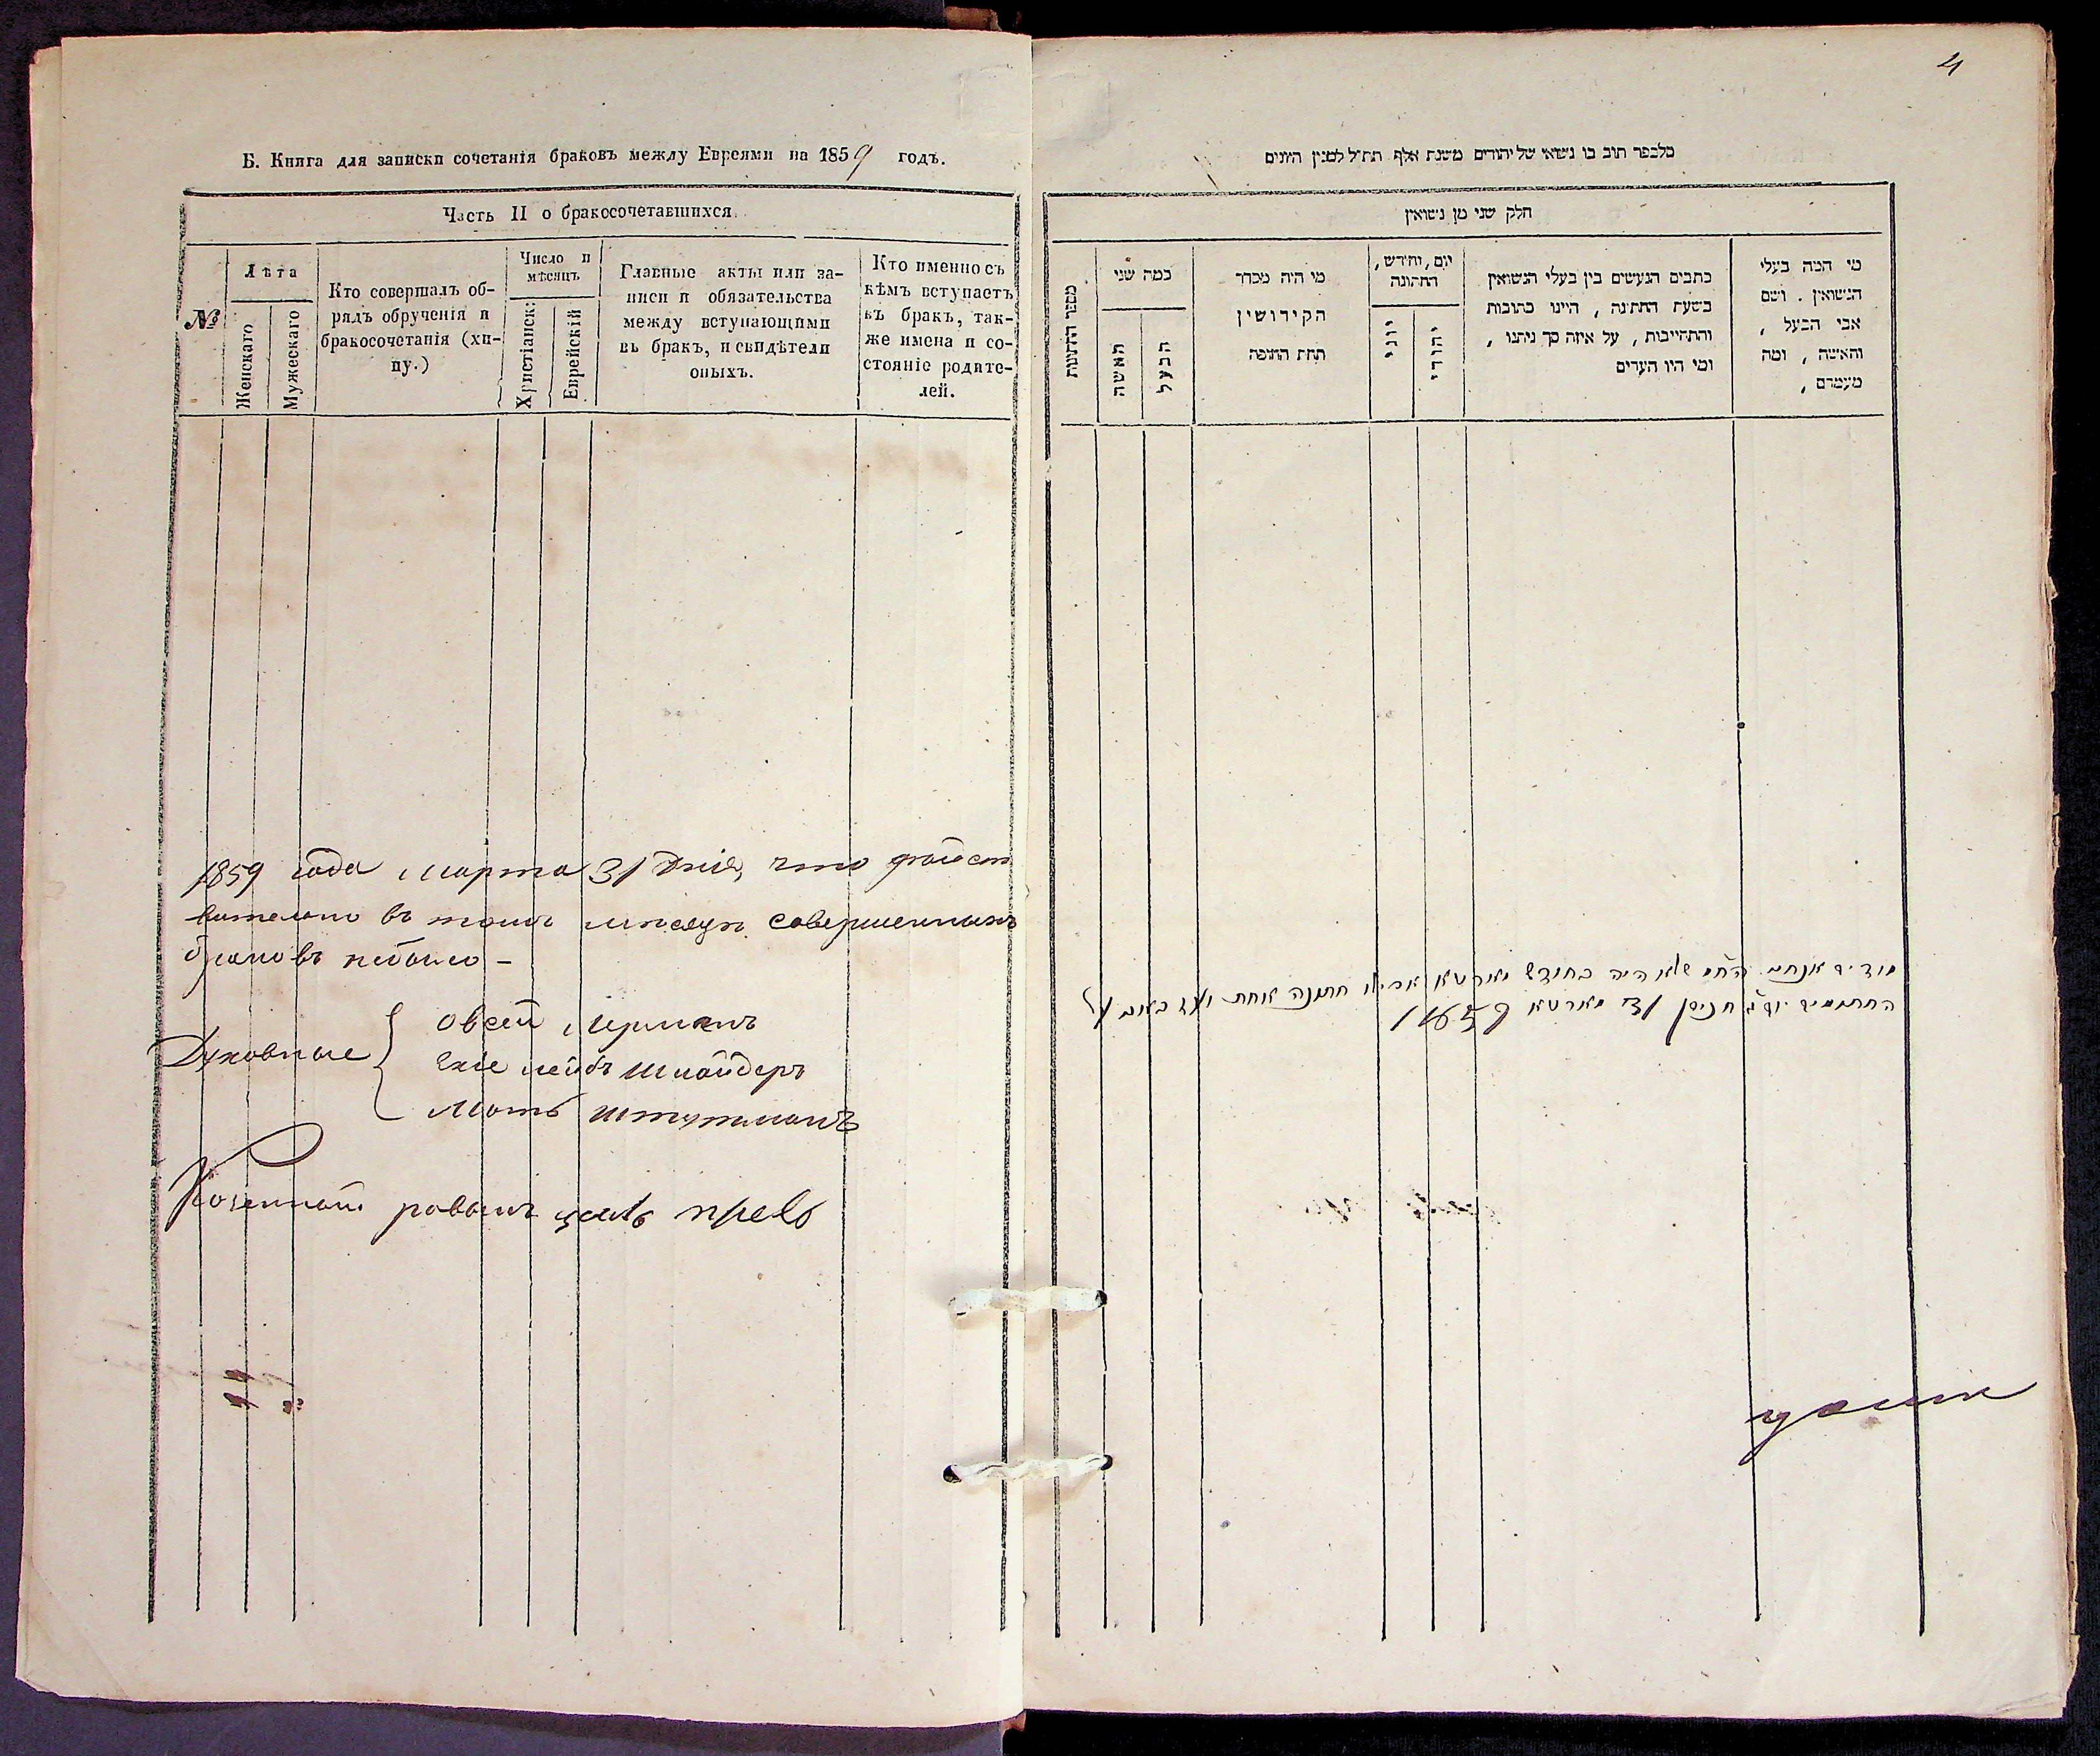 Б. Книга для записки сочетанія браковъ между Евреями на 1859 годъ.
Часть II о бракосочетавшихся.
№
Лѣта
Женскаго
Мужескаго
Кто совершалъ об-
рядъ обрученія и
бракосочетанія (хи-
пу.)
Число и
мѣсяцъ
Христіанскі
Еврейскій
Главные акты или за-
писи и обязательства
между вступающими
въ бракъ, и свидѣтели
оныхъ.
Кто именно съ
кѣмъ вступаетъ
въ бракъ, так-
же имена и со-
стояніе родите-
лей.
1859 года Марта 31 дня, что дѣйст
вительно въ томъ мѣсяцѣ совершенныхъ
браковъ небыло —
Духовные
Овсей
лейбъ Шнайдеръ
Мот Штутманъ
Казенный равинъ
4
מלבפר תוב בו נשואי של יהודים משנת אלף תת״ל למנין היונים
חלק שני מן נשואין
מספר החתונות
כמה שני
האשה
הבעל
מי היה מסדר
הקידושין
תחת החופה
יום, וחידש,
החתונה
יוני
יהודי
כתבים הנעשים בין בעלי הנשואין
בשעת החתונה, היינו כתובות
והתחייבות, על איזה סך ניתנו,
ומי היו העדים
מי המה בעלי
הנשואין. ושם
אבי הבעל,
והאשה, ומה
מעמדם,
שלא היה בחודש מארטא אפילו חתונה אחת
31 מארטא 1859